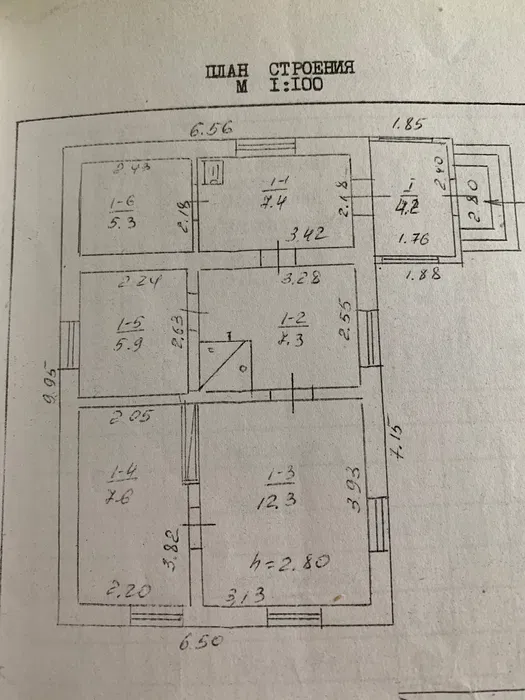 ПЛАН СТРОЕНИЯ
М 1:100
6.56
1.85
2.43
1-6
5.3
2.18
1-1
7.4
2.18
3.42
I
4.2
2.40
2.80
1.76
1.88
2.24
3.28
1-5
5.9
2.63
1-2
7.3
2.55
9.95
2.05
7.15
1-4
7.6
1-3
12.3
3.93
3.82
h=2.80
2.20
3.13
6.50